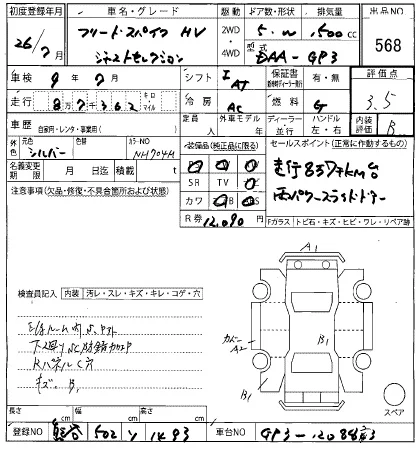 初度登録年月 車名・グレード 駆動 ドア数・形状 排気量 出品NO
26/7月 フリードスパイク HV 2WD ・ 4WD 5・W 1,500cc 568
ジャストセレクション 型式 DAA-GP3
車検 9年7月 シフト IAT 保証書 有・無 評価点
走行 87,362 キロ マイル 冷房 AC 燃料 G 3.5
車歴 自家用・レンタ・事業用( ) 定員 人 外車モデル 年 ディーラー 並行 ハンドル 左・右 内装評価 B
外色 元色 シルバー 色替 カラーNO NH704M 装備品(純正品に限る) セールスポイント(正常に作動するもの)
名義変更期限 月 日迄 積載 t 走行87千km台
SR TV 両パワースライドドアー
注意事項(欠品・修復・不具合箇所および状態) カワ
R券 12,090 Fガラス(トビ石・キズ・ヒビ・ワレ・リペア跡
A1
検査員記入 内装 汚レ・スレ・キズ・キレ・コゲ・穴
カバー A2 B1
キズ B1
B1 スペア
長さ cm 幅 cm 高さ cm
登録NO 熊谷 502 ソ 1493 車台NO GP3-1208863